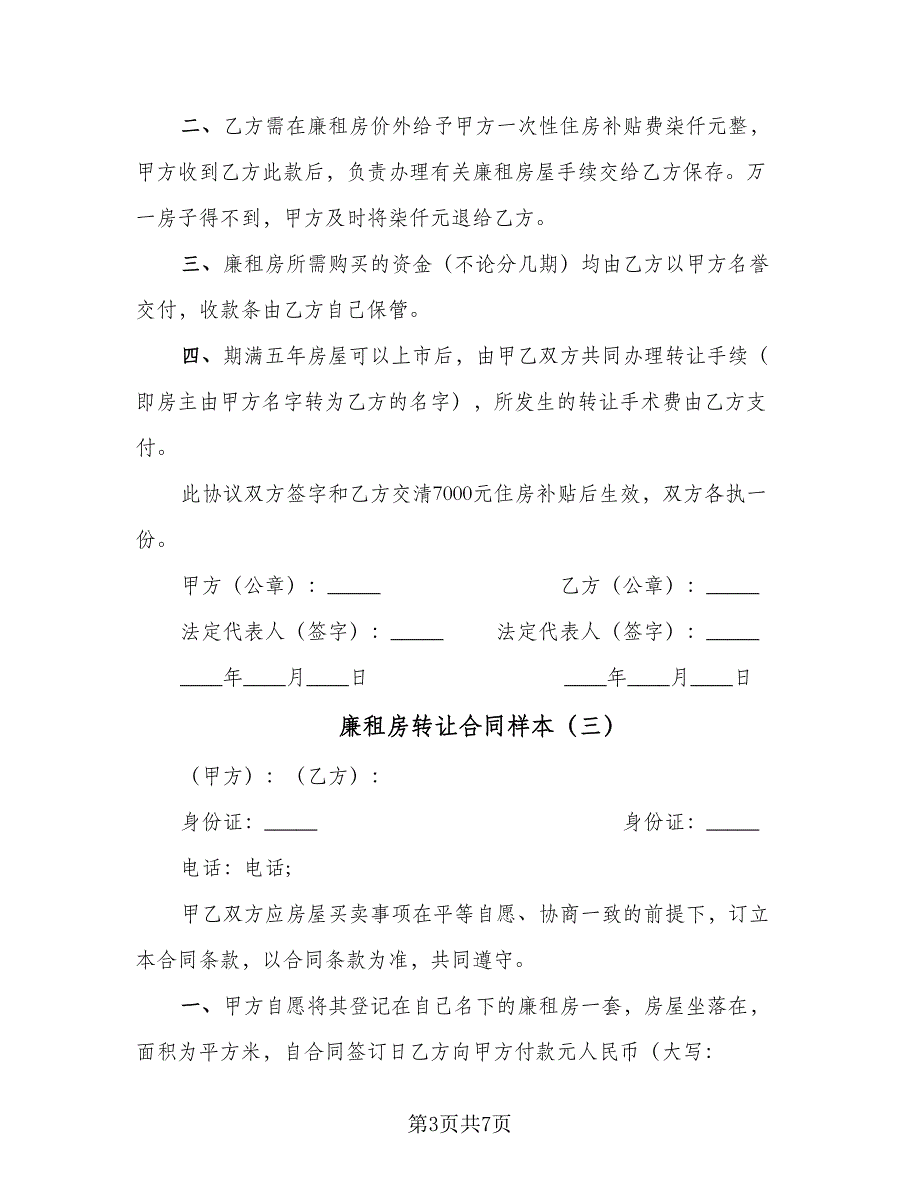 二、乙方需在廉租房价外给予甲方一次性住房补贴费柒仟元整，
甲方收到乙方此款后，负责办理有关廉租房屋手续交给乙方保存。万
一房子得不到，甲方及时将柒仟元退给乙方。
三、廉租房所需购买的资金（不论分几期）均由乙方以甲方名誉
交付，收款条由乙方自己保管。
四、期满五年房屋可以上市后，由甲乙双方共同办理转让手续（
即房主由甲方名字转为乙方的名字），所发生的转让手术费由乙方支
付。
此协议双方签字和乙方交清7000元住房补贴后生效，双方各执一
份。
甲方（公章）：_____ 乙方（公章）：_____
法定代表人（签字）：_____ 法定代表人（签字）：_____
____年____月____日 ____年____月____日
廉租房转让合同样本（三）
（甲方）：（乙方）：
身份证：_____ 身份证：_____
电话：电话;
甲乙双方应房屋买卖事项在平等自愿、协商一致的前提下，订立
本合同条款，以合同条款为准，共同遵守。
一、甲方自愿将其登记在自己名下的廉租房一套，房屋坐落在，
面积为平方米，自合同签订日乙方向甲方付款元人民币（大写：
第3页共7页